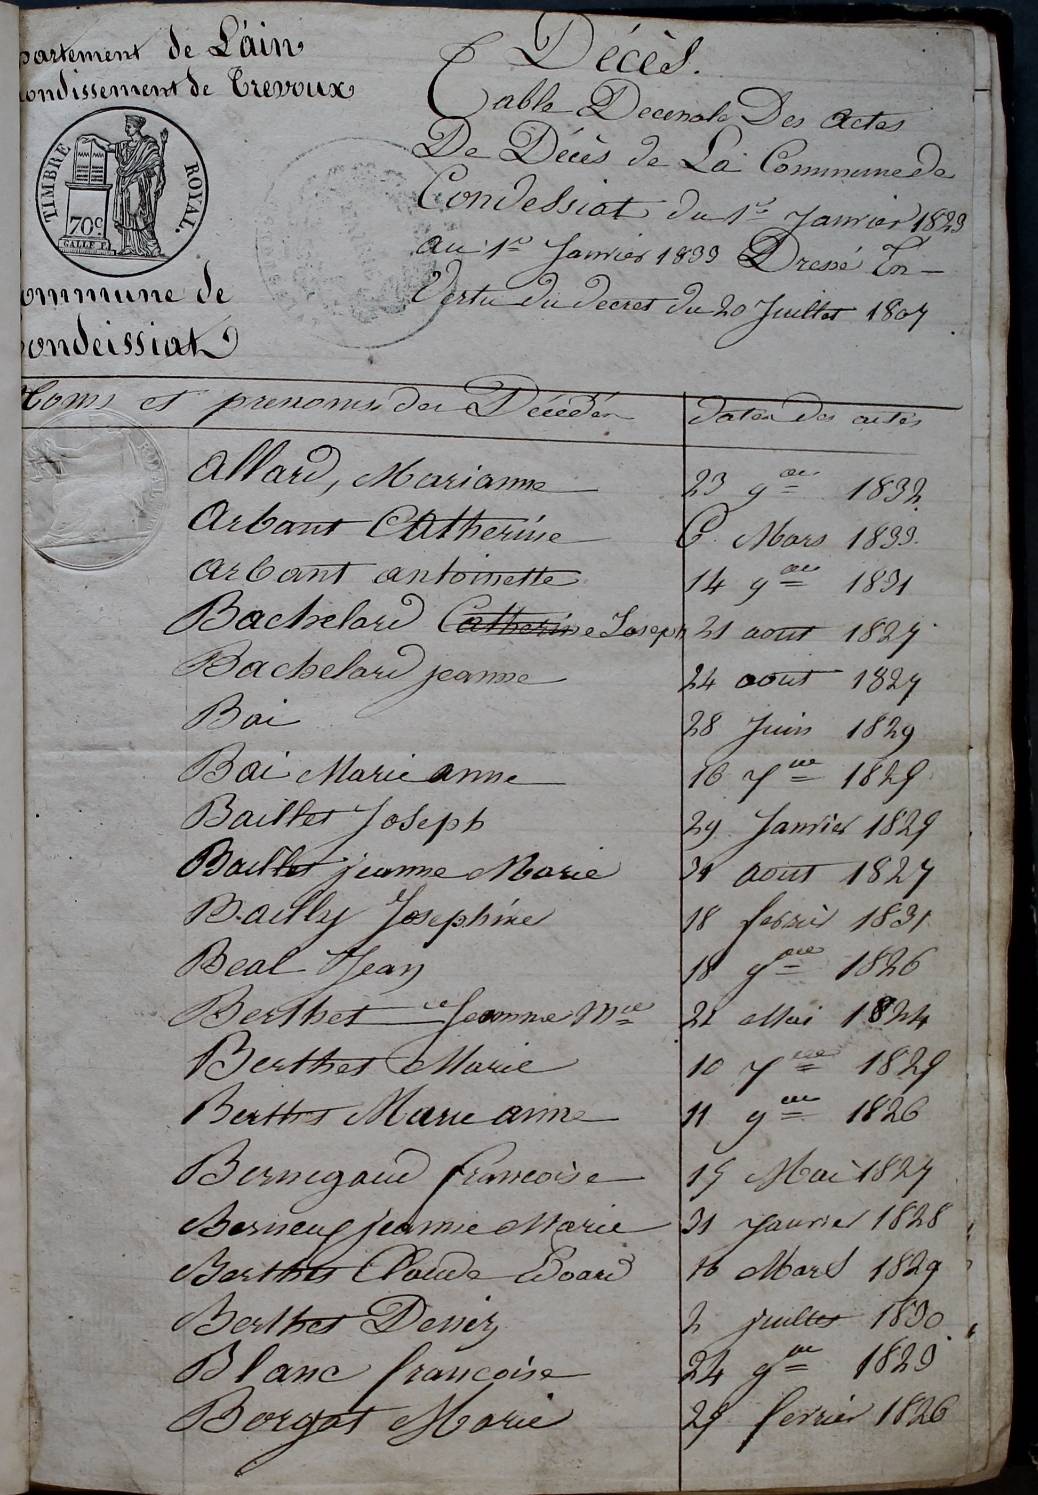 partement de L'ain
ondissement de Trevoux
TIMBRE ROYAL.
70c
GALLE F.
ommune de
ondeissiat
Décès.
Table Decenale Des actes
De Décès de La Commune de
Condessiat du 1er Janvier 1823
au 1er Janvier 1833 Dressé En
Vertu du decret du 20 Juillet 1807
Noms et prenoms des Décédés dates des actes
Allard, Marianne 23 9bre 1832
Arbant Catherine 6 Mars 1833
Arbant antoinette 14 9bre 1831
Bachelard Catherine Joseph 21 aout 1827
Bachelard jeanne 24 aout 1827
Bai 28 Juin 1829
Bai Marie anne 16 7bre 1829
Baillet Joseph 29 Janvier 1829
Baillet jeanne Marie 31 aout 1827
Bailly Josephine 18 fevrier 1831
Beal Jean 18 9bre 1826
Berthet Jeanne Mie 21 Mai 1824
Berthet Marie 10 7bre 1829
Berthet Marie anne 11 9bre 1826
Bernegoud francoise 15 Mai 1827
jeanne Marie 31 Janvier 1828
Berthet Claude Edoard 16 Mars 1829
Berthet Deniz 2 juillet 1830
Blanc francoise 24 9bre 1823
Borgat Marie 25 fevrier 1826